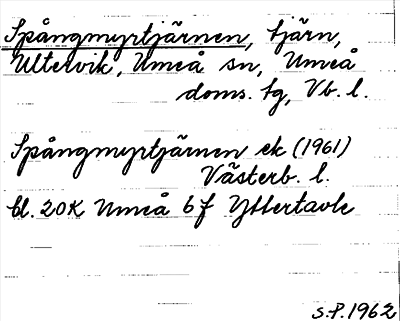 Spångmyrtjärnen, tjärn,
Ultervik, Umeå sn, Umeå
doms. tg, Vb. l.
Spångmyrtjärnen ek (1961)
Västerb. l.
bl. 20K Umeå 6f Yttertavle
S.P. 1962